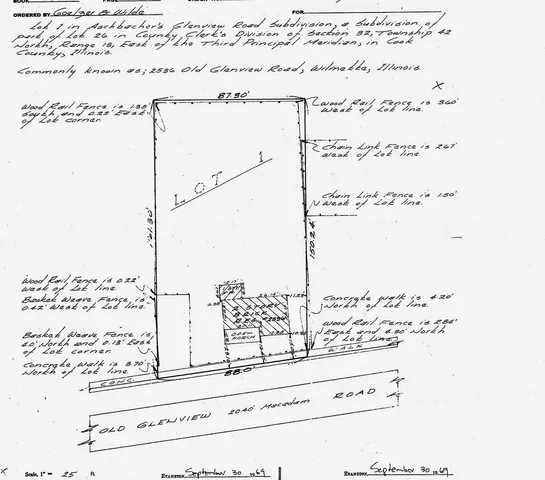 ORDERED BY Goelzer & Wilde
FOR
Lot 1 in Aschbacher's Glenview Road Subdivision, a Subdivision of
part, of Lot 26 in County Clerk's Division of Section 32, Township 42
North, Range 13, East of the Third Principal Meridian, in Cook
County, Illinois.
Commonly known as; 2536 Old Glenview Road, Wilmette, Illinois
X
87.90'
Wood Rail Fence is
South, and 0.25' East
of Lot corner.
Wood Rail Fence is 3.60'
West of Lot line.
Chain Link Fence is 2.67'
West of Lot line.
Chain Link Fence is 1.50'
West of Lot line.
LOT 1
150.24'
Wood Rail Fence is 0.22'
West of Lot line.
Basket Weave Fence is
0.42' West of Lot line.
Basket Weave Fence is
North and 0.13' East
of Lot corner.
Concrete Walk is 3.70'
North of Lot line.
Concrete Walk is 4.20'
North of Lot line.
Wood Rail Fence is
East and North
of Lot line.
BRICK
OPEN
PORCH
88.0'
CONC.
WALK
OLD GLENVIEW 20.40' Macadam ROAD
x
Scale, 1" = 25 ft.
EVANSTON, September 30 1969
EVANSTON, September 30, 1969